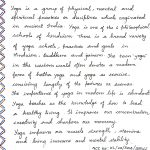 Yoga is a group of physical, mental and
spiritual practices or disciplines which originated
in ancient India. Yoga is one of the six philosophical
schools of Hinduism. There is a broad variety
of yoga schools, practices and goals in
Hinduism, Buddhism and Jainism. The term yoga
in the western world often denotes a modern
form of hatha yoga and yoga as exercise,
consisting largely of the postures or asanas.
The importance of yoga in modern life is abundant.
Yoga teaches us the knowledge of how to lead
a healthy living. It improves our concentration,
creativity and sharpens our memory.
Yoga improves our muscle strength, stamina
and bring immune and mental stability.